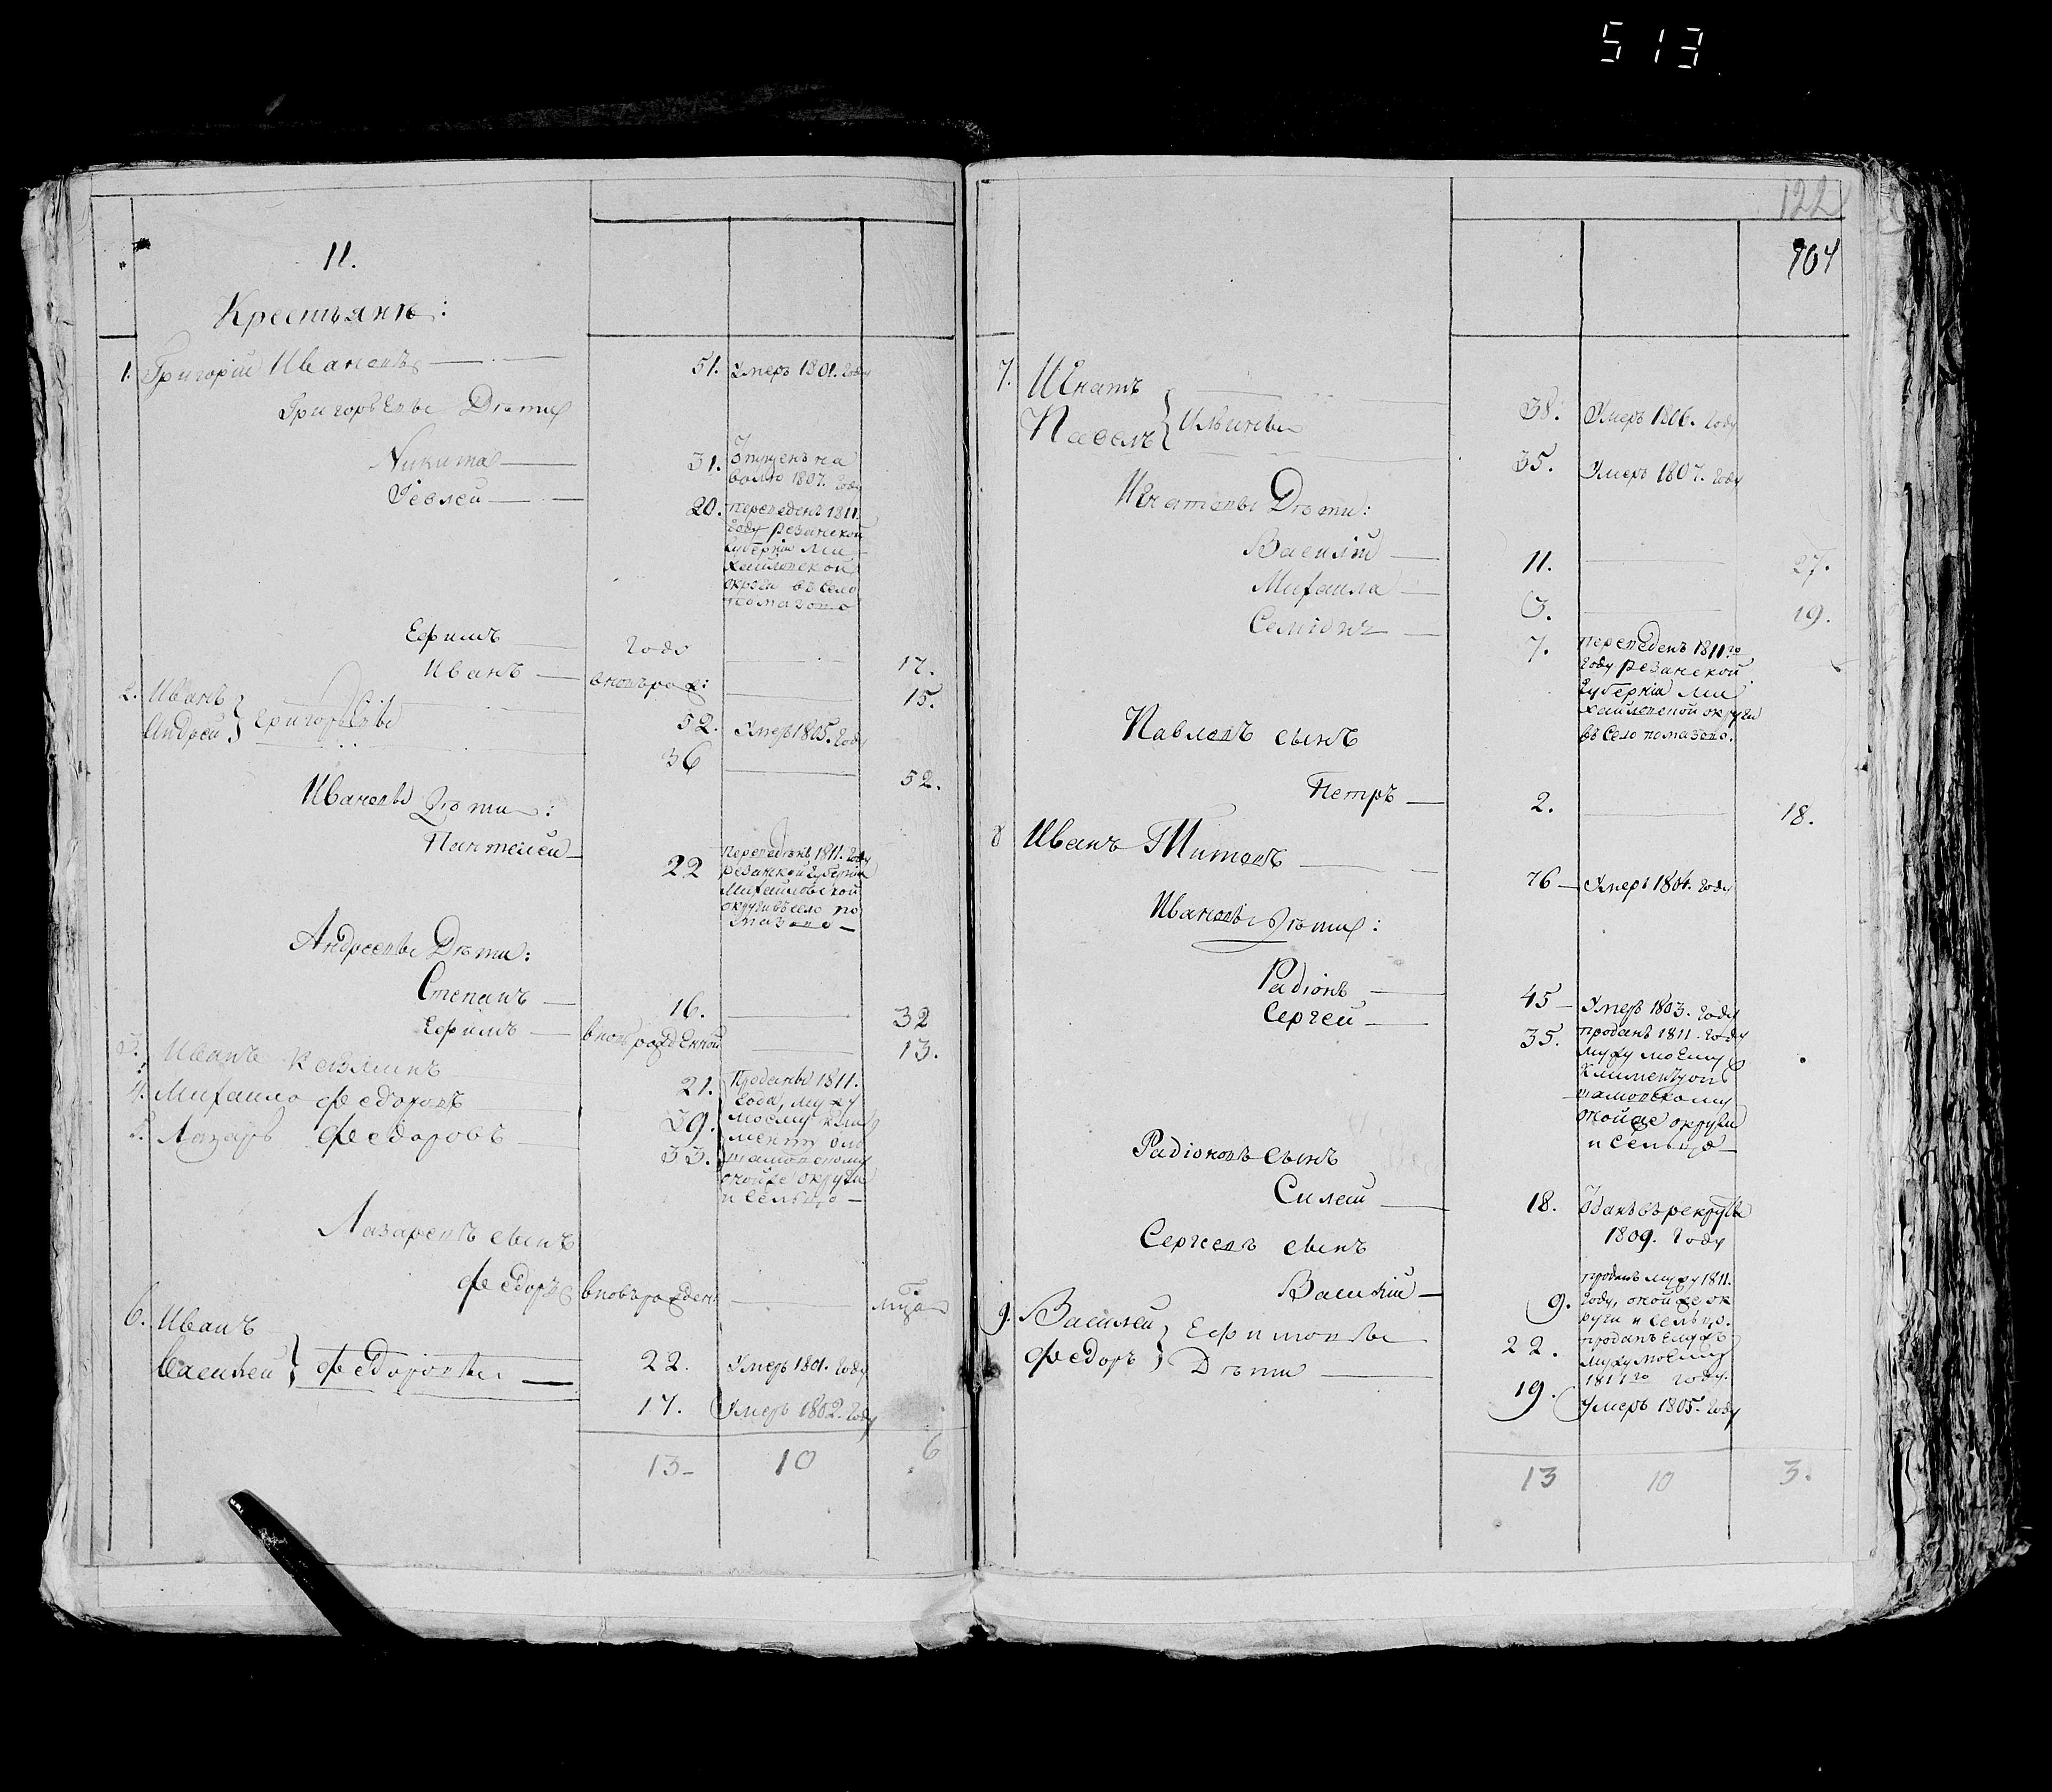 513
11.
Крестьяне:
1. Григорий Ивановъ 51. умеръ 1801. году
Григорьевы Дети
Никита 31. отпущенъ на
волю 1807. году
Иевлей 20. переведенъ 1811.
году резанской
губернии ми
хайловской
округи въ село
помазово
Ефимъ году 17.
Иванъ вновь рож: 15.
2. Иванъ
Андрей } григорьевы 52. умеръ 1805. году
36 52.
Ивановы Дети:
Пантелей 22 переведенъ 1811. году
резанской губернии
Михайловской
округи въ село по
мазово
Андреевы Дети:
Степанъ 16. 32
Ефимъ вновь рожденной 13.
3. Иванъ Козминъ 21. Проданы 1811.
4. Михайло федоровъ 39. года, мужу
5. Лазарь федоровъ 33. моему
оной же округи
и сельцо
Лазаревъ сынъ
федоръ вновь рожденъ
6. Иванъ
Василей } федоровы 22. умеръ 1801. году
17. умеръ 1802. году
13 10 6
122
704
7. Игнатъ
Павелъ } Ильины 38. умеръ 1806. году
35. умеръ 1807. году
Игнатовы Дети:
Василий 11. 27.
Михаила 3. 19.
Семионъ 7. переведенъ 1811го
году резанской
губернии ми
хайловской округи
въ село помазово.
Павловъ сынъ
Петръ 2. 18.
8 Иванъ Титовъ 76 умеръ 1804. году
Ивановы Дети:
Радионъ 45 умеръ 1803. году
Сергей 35. проданъ 1811. году
мужу моему
оной же округи
и сельцо
Радионовъ сынъ
Силай 18. Зданъ въ рекруты
1809. году
Сергеевъ сынъ
Василий 9. проданъ мужу 1811.
году, оной же ок
руги и сельцо.
9. Василей
федоръ } Ефимовы
Дети 22. проданъ ему жъ
мужу моему
1811го году.
19. умеръ 1805. году
13 10 3.